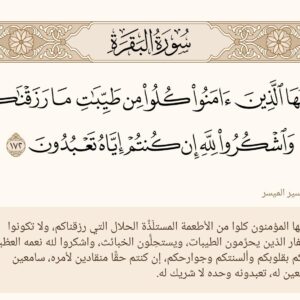 سُورَةُ البَقَرَةِ
هَا ٱلَّذِينَ ءَامَنُوا۟ كُلُوا۟ مِن طَيِّبَٰتِ مَا رَزَقْنَٰكُ
وَٱشْكُرُوا۟ لِلَّهِ إِن كُنتُمْ إِيَّاهُ تَعْبُدُونَ ١٧٢
سير الميسر
ها المؤمنون كلوا من الأطعمة المستلَذَّة الحلال التي رزقناكم، ولا تكونوا
فار الذين يحرِّمون الطيبات، ويستحِلُّون الخبائث، واشكروا لله نعمه العظي
كم بقلوبكم وألسنتكم وجوارحكم، إن كنتم حقًا منقادين لأمره، سامعين
عين له، تعبدونه وحده لا شريك له.